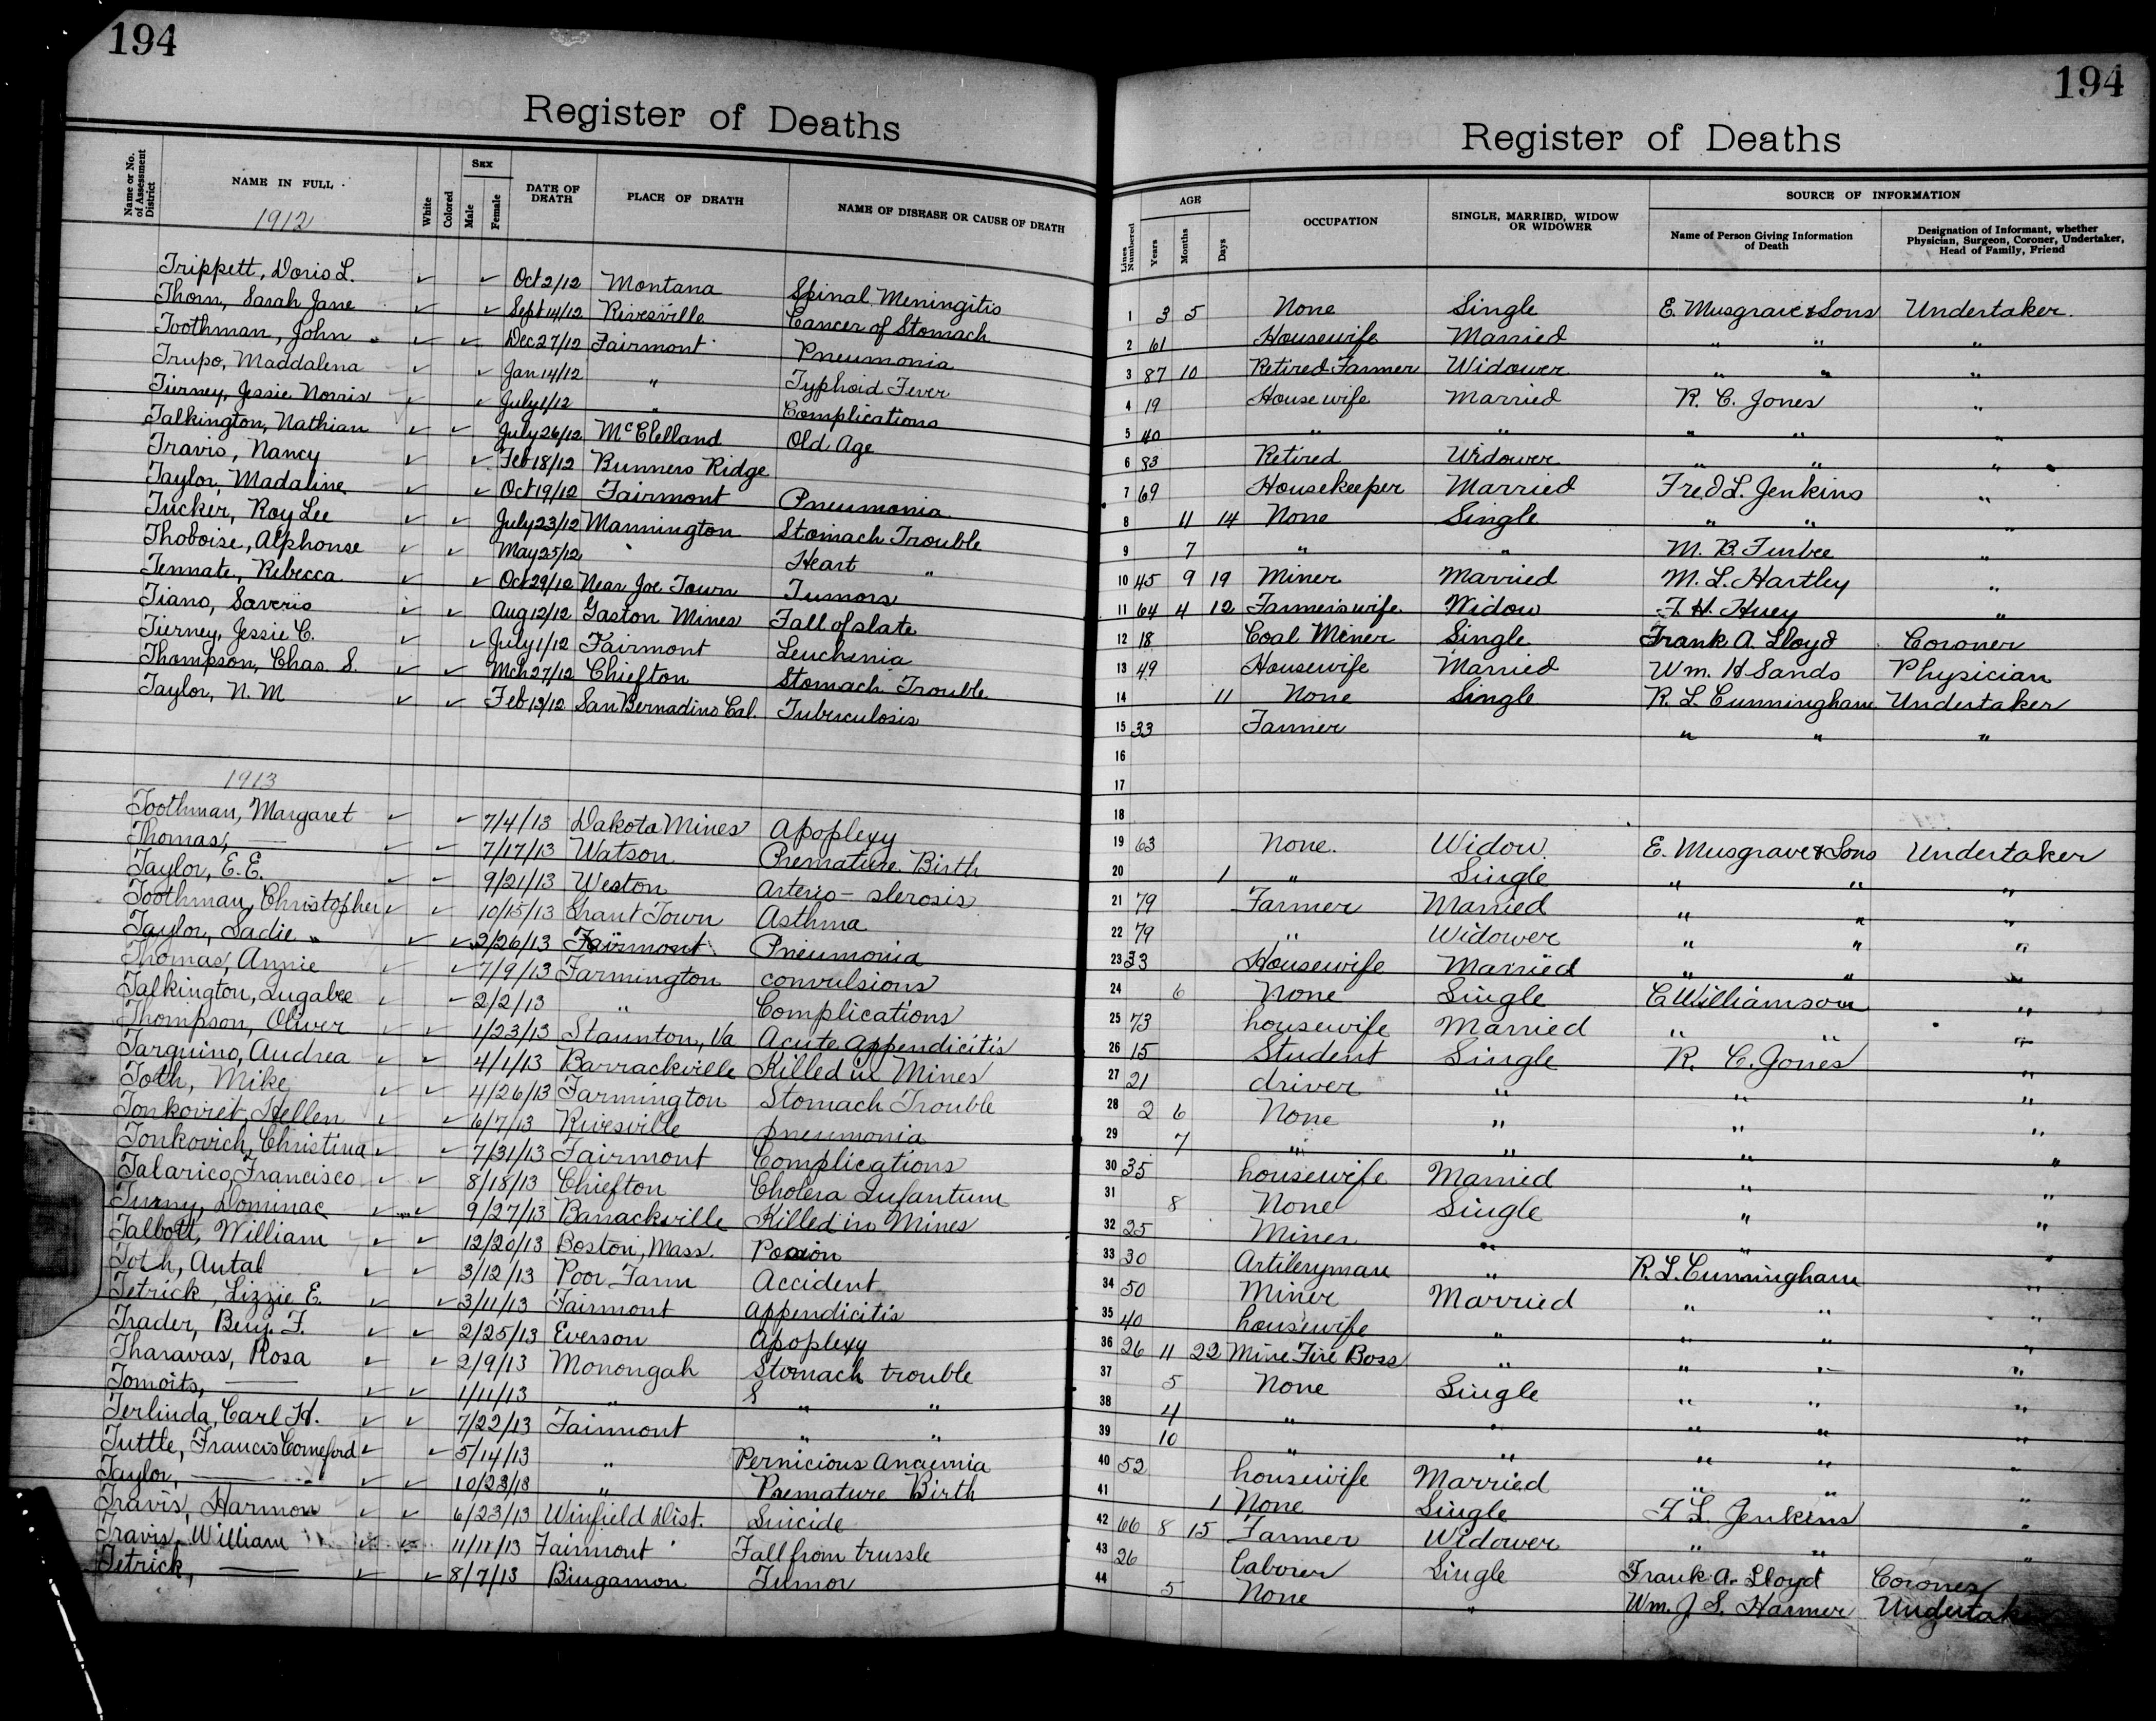 194
Register of Deaths
Name or No. of Assessment District
NAME IN FULL
White
Colored
SEX
Male
Female
DATE OF DEATH
PLACE OF DEATH
NAME OF DISEASE OR CAUSE OF DEATH
1912
Trippett, Doris L. ✓ ✓ Oct 2/12 Montana Spinal Meningitis
Thorn, Sarah Jane ✓ ✓ Sept 14/12 Rivesville Cancer of Stomach
Toothman, John " ✓ ✓ Dec 27/12 Fairmont Pneumonia
Trupo, Maddalena ✓ ✓ Jan 14/12 " Typhoid Fever
Tierney, Jessie Norris ✓ ✓ July 1/12 " Complications
Talkington, Nathian ✓ ✓ July 26/12 McClelland Old Age
Travis, Nancy ✓ ✓ Feb 18/12 Bunners Ridge
Taylor, Madaline ✓ ✓ Oct 19/12 Fairmont Pneumonia
Tucker, Roy Lee ✓ ✓ July 23/12 Mannington Stomach Trouble
Thoboise, Alphonse ✓ ✓ May 25/12 " Heart "
Tennate, Rebecca ✓ ✓ Oct 29/12 Near Joe Town Tumors
Tiano, Saverio ✓ ✓ Aug 12/12 Gaston Mines Fall of slate
Tierney, Jessie C. ✓ ✓ July 1/12 Fairmont Leuchenia
Thompson, Chas. S. ✓ ✓ Mch 27/12 Chiefton Stomach Trouble
Taylor, N. M ✓ ✓ Feb 13/12 San Bernadino Cal. Tuberculosis
1913
Toothman, Margaret ✓ ✓ 7/4/13 Dakota Mines Apoplexy
Thomas, — ✓ ✓ 7/17/13 Watson Premature Birth
Taylor, E. E. ✓ ✓ 9/21/13 Weston Arterio-slerosis
Toothman, Christopher ✓ ✓ 10/15/13 Grant Town Asthma
Taylor, Sadie " ✓ ✓ 2/26/13 Fairmont Pneumonia
Thomas, Annie ✓ ✓ 7/9/13 Farmington convulsions
Talkington, Lugabee ✓ ✓ 2/2/13 " Complications
Thompson, Oliver ✓ ✓ 1/23/13 Staunton, Va Acute appendicitis
Tarquino, Audrea ✓ ✓ 4/1/13 Barrackville Killed in Mines
Toth, Mike ✓ ✓ 4/26/13 Farmington Stomach Trouble
Tonkoviet, Hellen ✓ ✓ 6/7/13 Rivesville pneumonia
Tonkovich, Christina ✓ ✓ 7/31/13 Fairmont Complications
Talarico, Francisco ✓ ✓ 8/18/13 Chiefton Cholera Infantum
Turny, Dominac ✓ ✓ 9/27/13 Barrackville Killed in Mines
Talbott, William ✓ ✓ 12/20/13 Boston, Mass. Posion
Toth, Antal ✓ ✓ 3/12/13 Poor Farm Accident
Tetrick, Lizzie E. ✓ ✓ 3/11/13 Fairmont Appendicitis
Trader, Benj. F. ✓ ✓ 2/25/13 Everson Apoplexy
Tharavas, Rosa ✓ ✓ 2/9/13 Monongah Stomach trouble
Tomoits, — ✓ ✓ 1/11/13 " S " "
Terlinda, Carl H. ✓ ✓ 7/22/13 Fairmont " "
Tuttle, Francis Comeford ✓ ✓ 5/14/13 " Pernicious Anaemia
Taylor, — ✓ ✓ 10/23/13 " Premature Birth
Travis, Harmon ✓ ✓ 6/23/13 Winfield Dist. Suicide
Travis, William ✓ ✓ 11/11/13 Fairmont Fall from trussle
Tetrick, — ✓ ✓ 8/7/13 Bingamon Tumor
194
Register of Deaths
Lines Numbered
AGE
Years
Months
Days
OCCUPATION
SINGLE, MARRIED, WIDOW OR WIDOWER
SOURCE OF INFORMATION
Name of Person Giving Information of Death
Designation of Informant, whether Physician, Surgeon, Coroner, Undertaker, Head of Family, Friend
1 3 5 None Single E. Musgrave & Sons Undertaker
2 61 Housewife Married " " "
3 87 10 Retired Farmer Widower " " "
4 19 Housewife Married R. C. Jones "
5 40 " " " " "
6 83 Retired Widower " " "
7 69 Housekeeper Married Fred L. Jenkins "
8 11 14 None Single " " "
9 7 " " M. B. Furbee "
10 45 9 19 Miner Married M. L. Hartley "
11 64 4 12 Farmer's wife Widow F. H. Huey "
12 18 Coal Miner Single Frank A. Lloyd Coroner
13 49 Housewife Married Wm. H Sands Physician
14 11 None Single R. L. Cunningham Undertaker
15 33 Farmer " " "
16
17
18
19 63 None. Widow E. Musgrave & Sons Undertaker
20 1 " Single " " "
21 79 Farmer Married " " "
22 79 " Widower " " "
23 33 Housewife Married " " "
24 6 None Single C Williamson "
25 73 housewife Married " " "
26 15 Student Single R. C. Jones "
27 21 driver " " "
28 2 6 None " " "
29 7 " " " "
30 35 housewife Married " "
31 8 None Single " "
32 25 Miner " " "
33 30 Artileryman " R. L. Cunningham "
34 50 Miner Married " " "
35 40 housewife " " " "
36 26 11 22 Mine Fire Boss " " " "
37 5 None Single " " "
38 4 " " " " "
39 10 " " " " "
40 52 housewife Married " " "
41 1 None Single F L. Jenkins "
42 66 8 15 Farmer Widower " " "
43 26 laborer Single Frank A. Lloyd Coroner
44 5 None " Wm. J. S. Harmer Undertaker